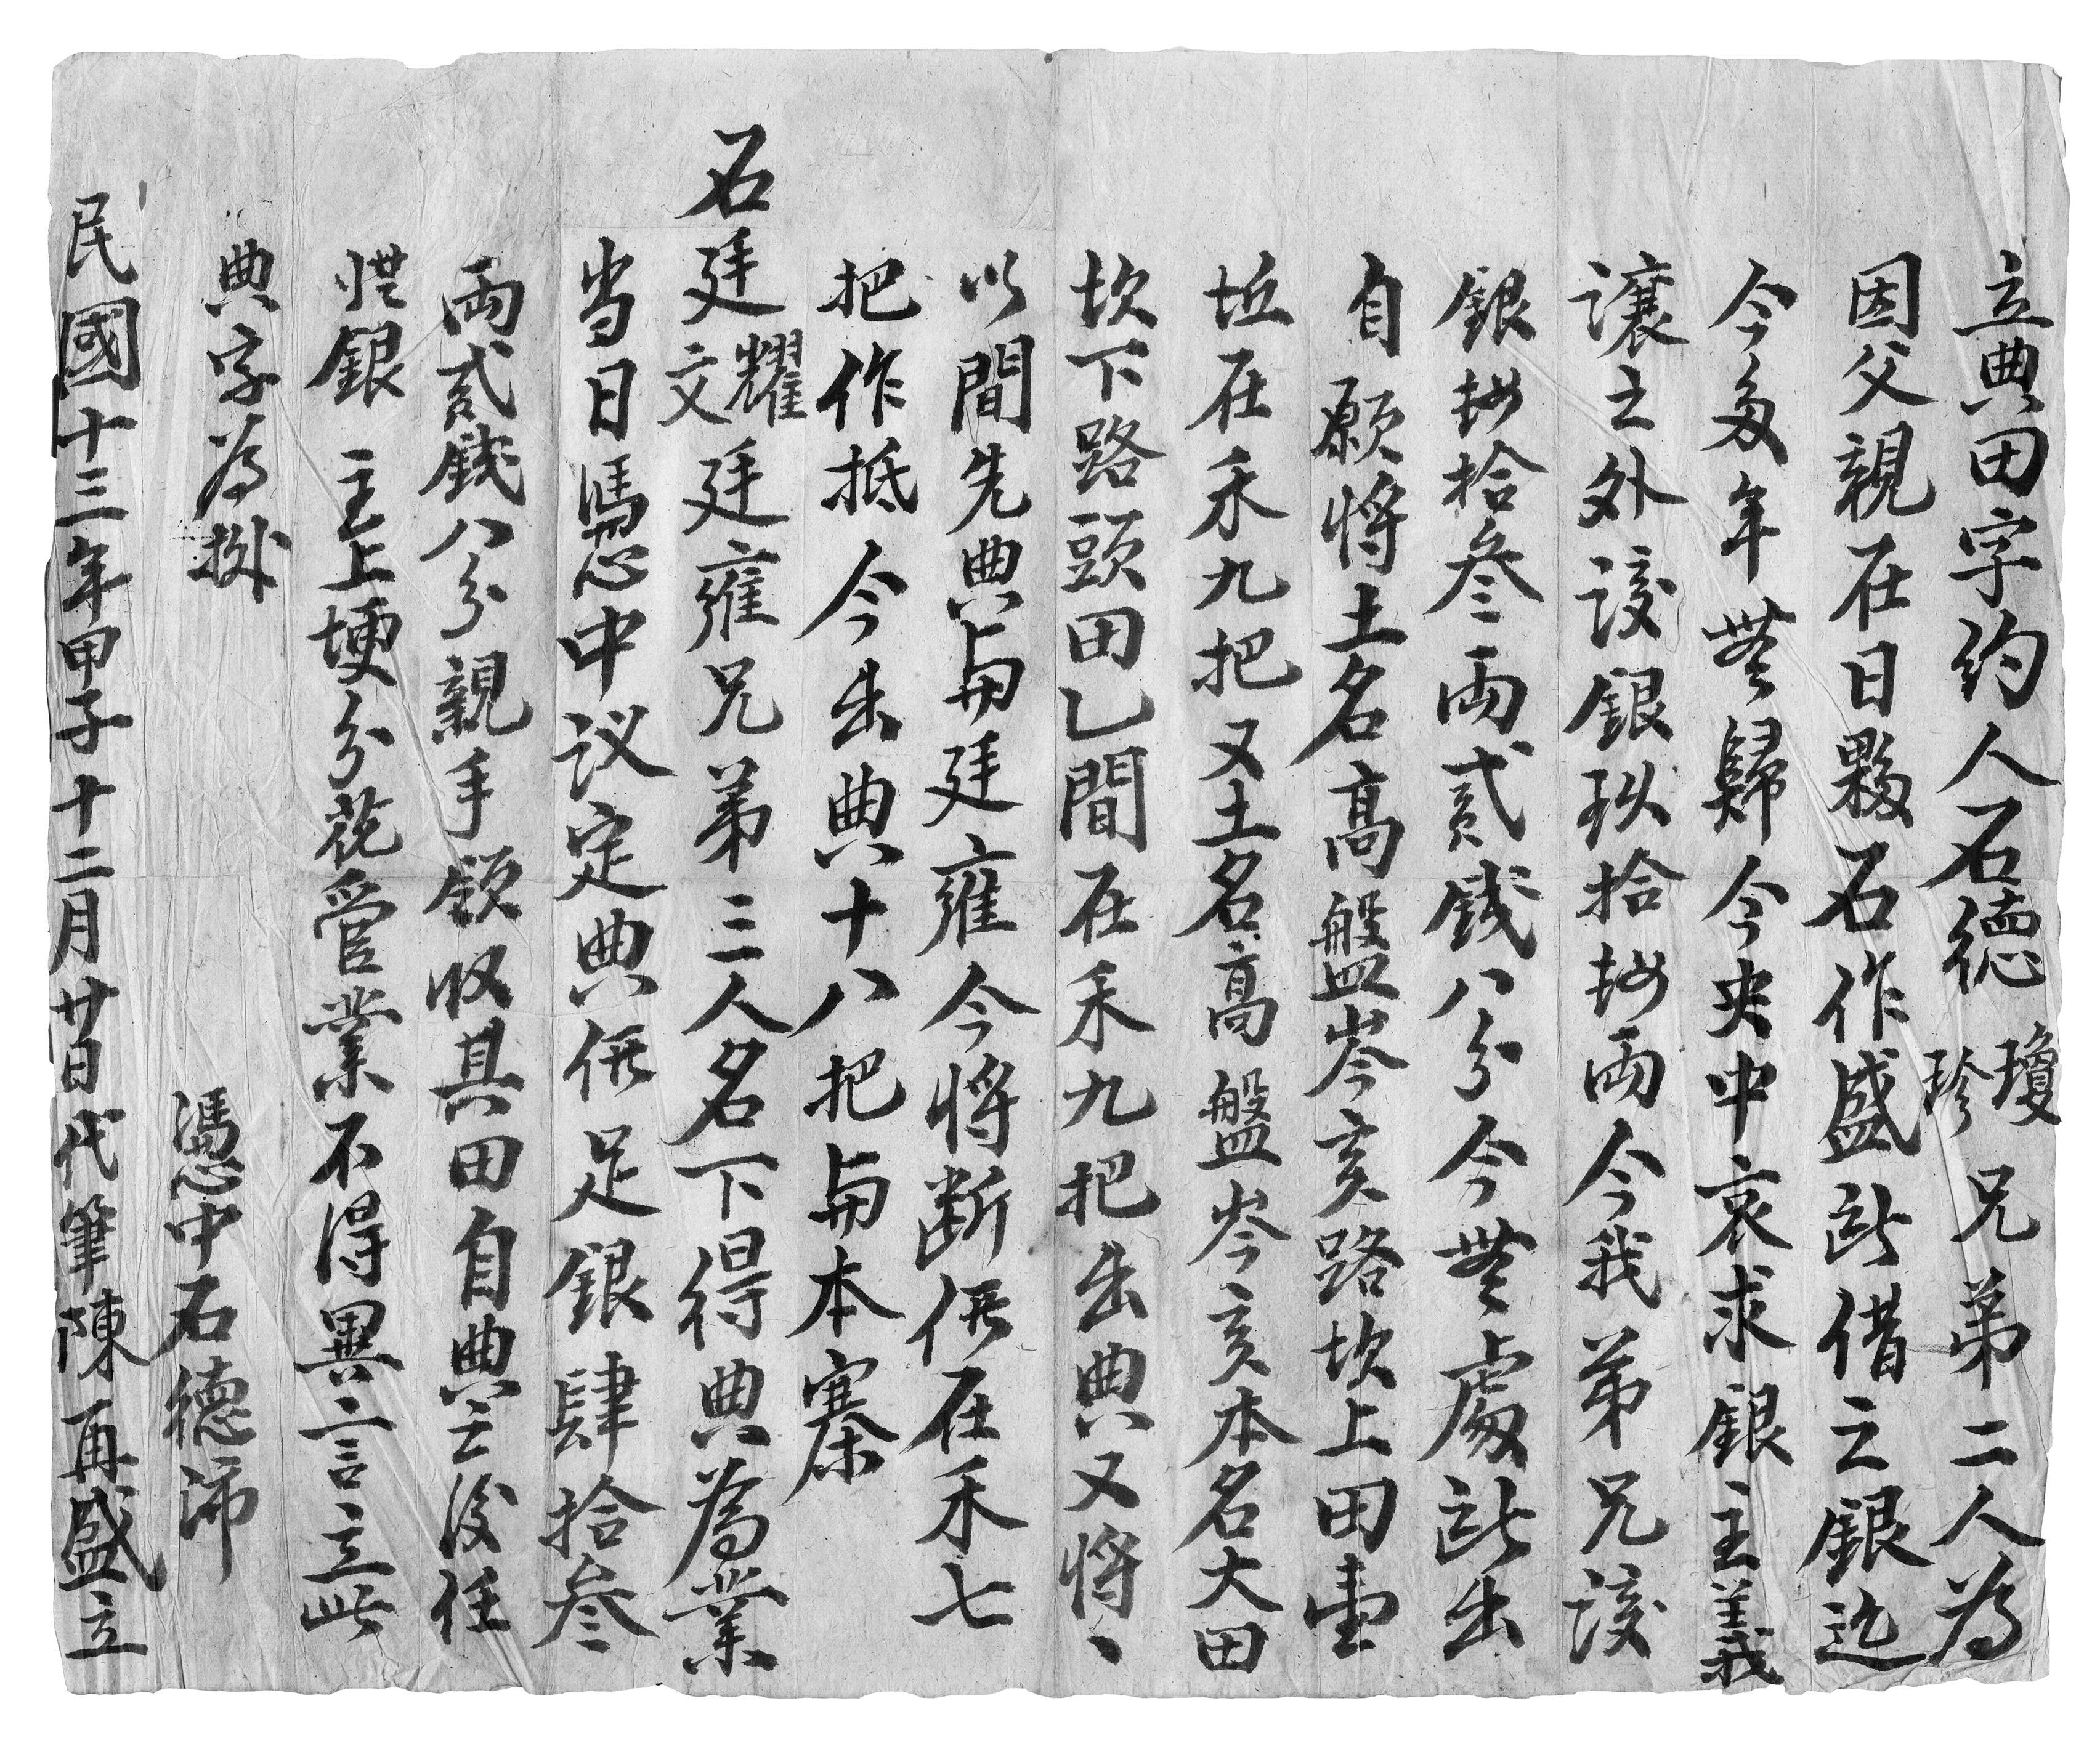 立典田字約人石德瓊珍兄弟二人為
因父親在日夥石作盛此借之銀迄
今多年無歸今央中哀求銀主義
讓之外該銀玖拾捌兩今我弟兄該
銀捌拾叁兩貳錢八分今無處出
自願將土名高盤岑亥路坎上田壹
坵在禾九把又土名高盤岑亥本名大田
坎下路頭田乙間在禾九把出典又將
以間先典與廷雍今將断價在禾七
把作抵今出典十八把與本寨
石廷耀文廷雍兄弟三人名下得典為業
当日憑中议定典價足銀肆拾叁
兩貳錢八分親手領收其田自典之後任
凴銀主上埂分花管業不得異言立此
典字為拠
憑中石德沛
民國十三年甲子十二月廿日代筆陳再盛立